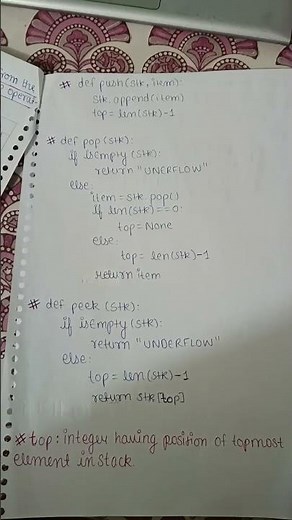 from the
operat
# def push(stk, item):
stk.append(item)
top = len(stk)-1
# def pop(stk):
if isEmpty(stk):
return "UNERFLOW"
else:
item = stk.pop()
if len(stk)==0:
top=None
else:
top = len(stk)-1
return item
# def peek (stk):
if isEmpty(stk):
return "UNDERFLOW"
else:
top = len(stk)-1
return stk[top]
* top: integer having position of topmost
element in stack.